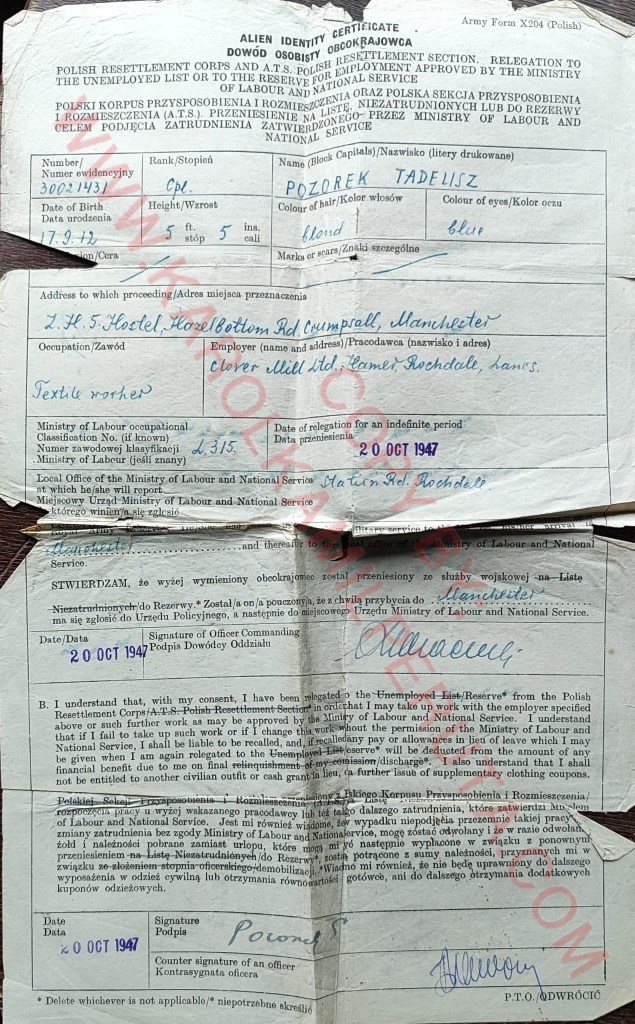 Army Form X204 (Polish)
ALIEN IDENTITY CERTIFICATE
DOWÓD OSOBISTY OBCOKRAJOWCA
POLISH RESETTLEMENT CORPS AND A.T.S. POLISH RESETTLEMENT SECTION. RELEGATION TO
THE UNEMPLOYED LIST OR TO THE RESERVE FOR EMPLOYMENT APPROVED BY THE MINISTRY
OF LABOUR AND NATIONAL SERVICE
POLSKI KORPUS PRZYSPOSOBIENIA I ROZMIESZCZENIA ORAZ POLSKA SEKCJA PRZYSPOSOBIENIA
I ROZMIESZCZENIA (A.T.S.). PRZENIESIENIE NA LISTĘ, NIEZATRUDNIONYCH LUB DO REZERWY
CELEM PODJĘCIA ZATRUDNIENIA ZATWIERDZONEGO PRZEZ MINISTRY OF LABOUR AND
NATIONAL SERVICE
Number/ Numer ewidencyjny
30021431
Rank/Stopień
Cpl.
Name (Block Capitals)/Nazwisko (litery drukowane)
POZOREK TADEUSZ
Date of Birth
Data urodzenia
17.9.12
Height/Wzrost
5 ft. stóp 5 ins. cali
Colour of hair/Kolor włosów
blond
Colour of eyes/Kolor oczu
blue
/Cera
Marks or scars/Znaki szczególne
Address to which proceeding/Adres miejsca przeznaczenia
Hostel, Hazel Bottom Rd. Crumpsall, Manchester
Occupation/Zawód
Textile worker
Employer (name and address)/Pracodawca (nazwisko i adres)
Clover Mill Ltd. Hamer Rochdale, Lancs.
Ministry of Labour occupational
Classification No. (if known)
Numer zawodowej klasyfikacji
Ministry of Labour (jeśli znany)
L.315.
Date of relegation for an indefinite period
Data przeniesienia
20 OCT 1947
Local Office of the Ministry of Labour and National Service
at which he/she will report
Miejscowy Urząd Ministry of Labour and National Service
którego winien/a się zgłosić
Station Rd. Rochdale
Manchester and thereafter to the local office of the Ministry of Labour and National
Service.
STWIERDZAM, że wyżej wymieniony obcokrajowiec został przeniesiony ze służby wojskowej na Listę
Niezatrudnionych/do Rezerwy.* Został/a on/a pouczony/a, że z chwilą przybycia do Manchester
ma się zgłosić do Urzędu Policyjnego, a następnie do miejscowego Urzędu Ministry of Labour and National Service.
Date/Data
20 OCT 1947
Signature of Officer Commanding
Podpis Dowódcy Oddziału
B. I understand that, with my consent, I have been relegated to the Unemployed List/Reserve* from the Polish
Resettlement Corps/A.T.S. Polish Resettlement Section* in order that I may take up work with the employer specified
above or such further work as may be approved by the Ministry of Labour and National Service. I understand
that if I fail to take up such work or if I change this work without the permission of the Ministry of Labour and
National Service, I shall be liable to be recalled, and, if recalled any pay or allowances in lieu of leave which I may
be given when I am again relegated to the Unemployed List/Reserve* will be deducted from the amount of any
financial benefit due to me on final relinquishment of my commission/discharge*. I also understand that I shall
not be entitled to another civilian outfit or cash grant in lieu, a further issue of supplementary clothing coupons.
Polskiej Sekcji Przysposobienia i Rozmieszczenia Polskiego Korpusu Przysposobienia i Rozmieszczenia/
rozpoczęcia pracy u wyżej wskazanego pracowcy lub też dalszego zatrudnienia, które zatwierdzi
of Labour and National Service. Jest mi również wiadome, że w wypadku niepodjęcia przezemnie takiej pracy
zmiany zatrudnienia bez zgody Ministry of Labour and National Service, mogę zostać odwołany i że w razie odwołania
żołd i należności pobrane zamiast urlopu, które mogą mi być następnie wypłacone w związku z ponownym
przeniesieniem na Listę Niezatrudnionych/do Rezerwy*, zostaną potrącone z sumy należności, przyznanych mi w
związku ze złożeniem stopnia oficerskiego/demobilizacji.* Wiadno mi również, że nie będę uprawniony do dalszego
wyposażenia w odzież cywilną lub otrzymania równowartości gotówce, ani do dalszego otrzymania dodatkowych
kuponów odzieżowych.
Date
Data
20 OCT 1947
Signature
Podpis
Pozorek T
Counter signature of an officer
Kontrasygnata oficera
* Delete whichever is not applicable/* niepotrzebne skreślić
P.T.O./ODWRÓCIĆ
COPY BY: